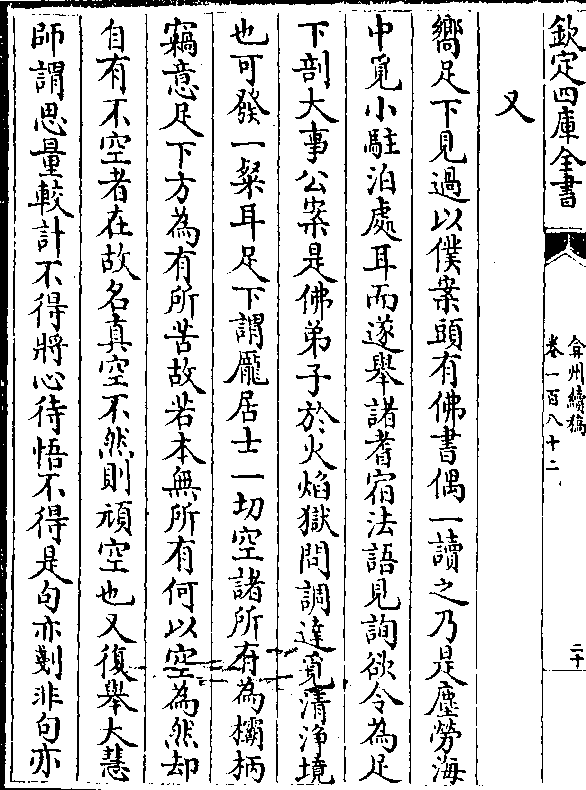 欽定四庫全書
弇州續稿
卷一百八十二
二十
又
嚮足下見過以僕案頭有佛書偶一讀之乃是塵勞海
中覓小駐泊處耳而遂舉諸耆宿法語見詢欲令為足
下剖大事公案是佛弟子於火焰獄問調達覓清淨境
也可發一粲耳足下謂龎居士一切空諸所有為欛柄
竊意足下方為有所苦故若本無所有何以空為然却
自有不空者在故名真空不然則頑空也又復舉大慧
師謂思量較計不得將心待悟不得是句亦剗非句亦